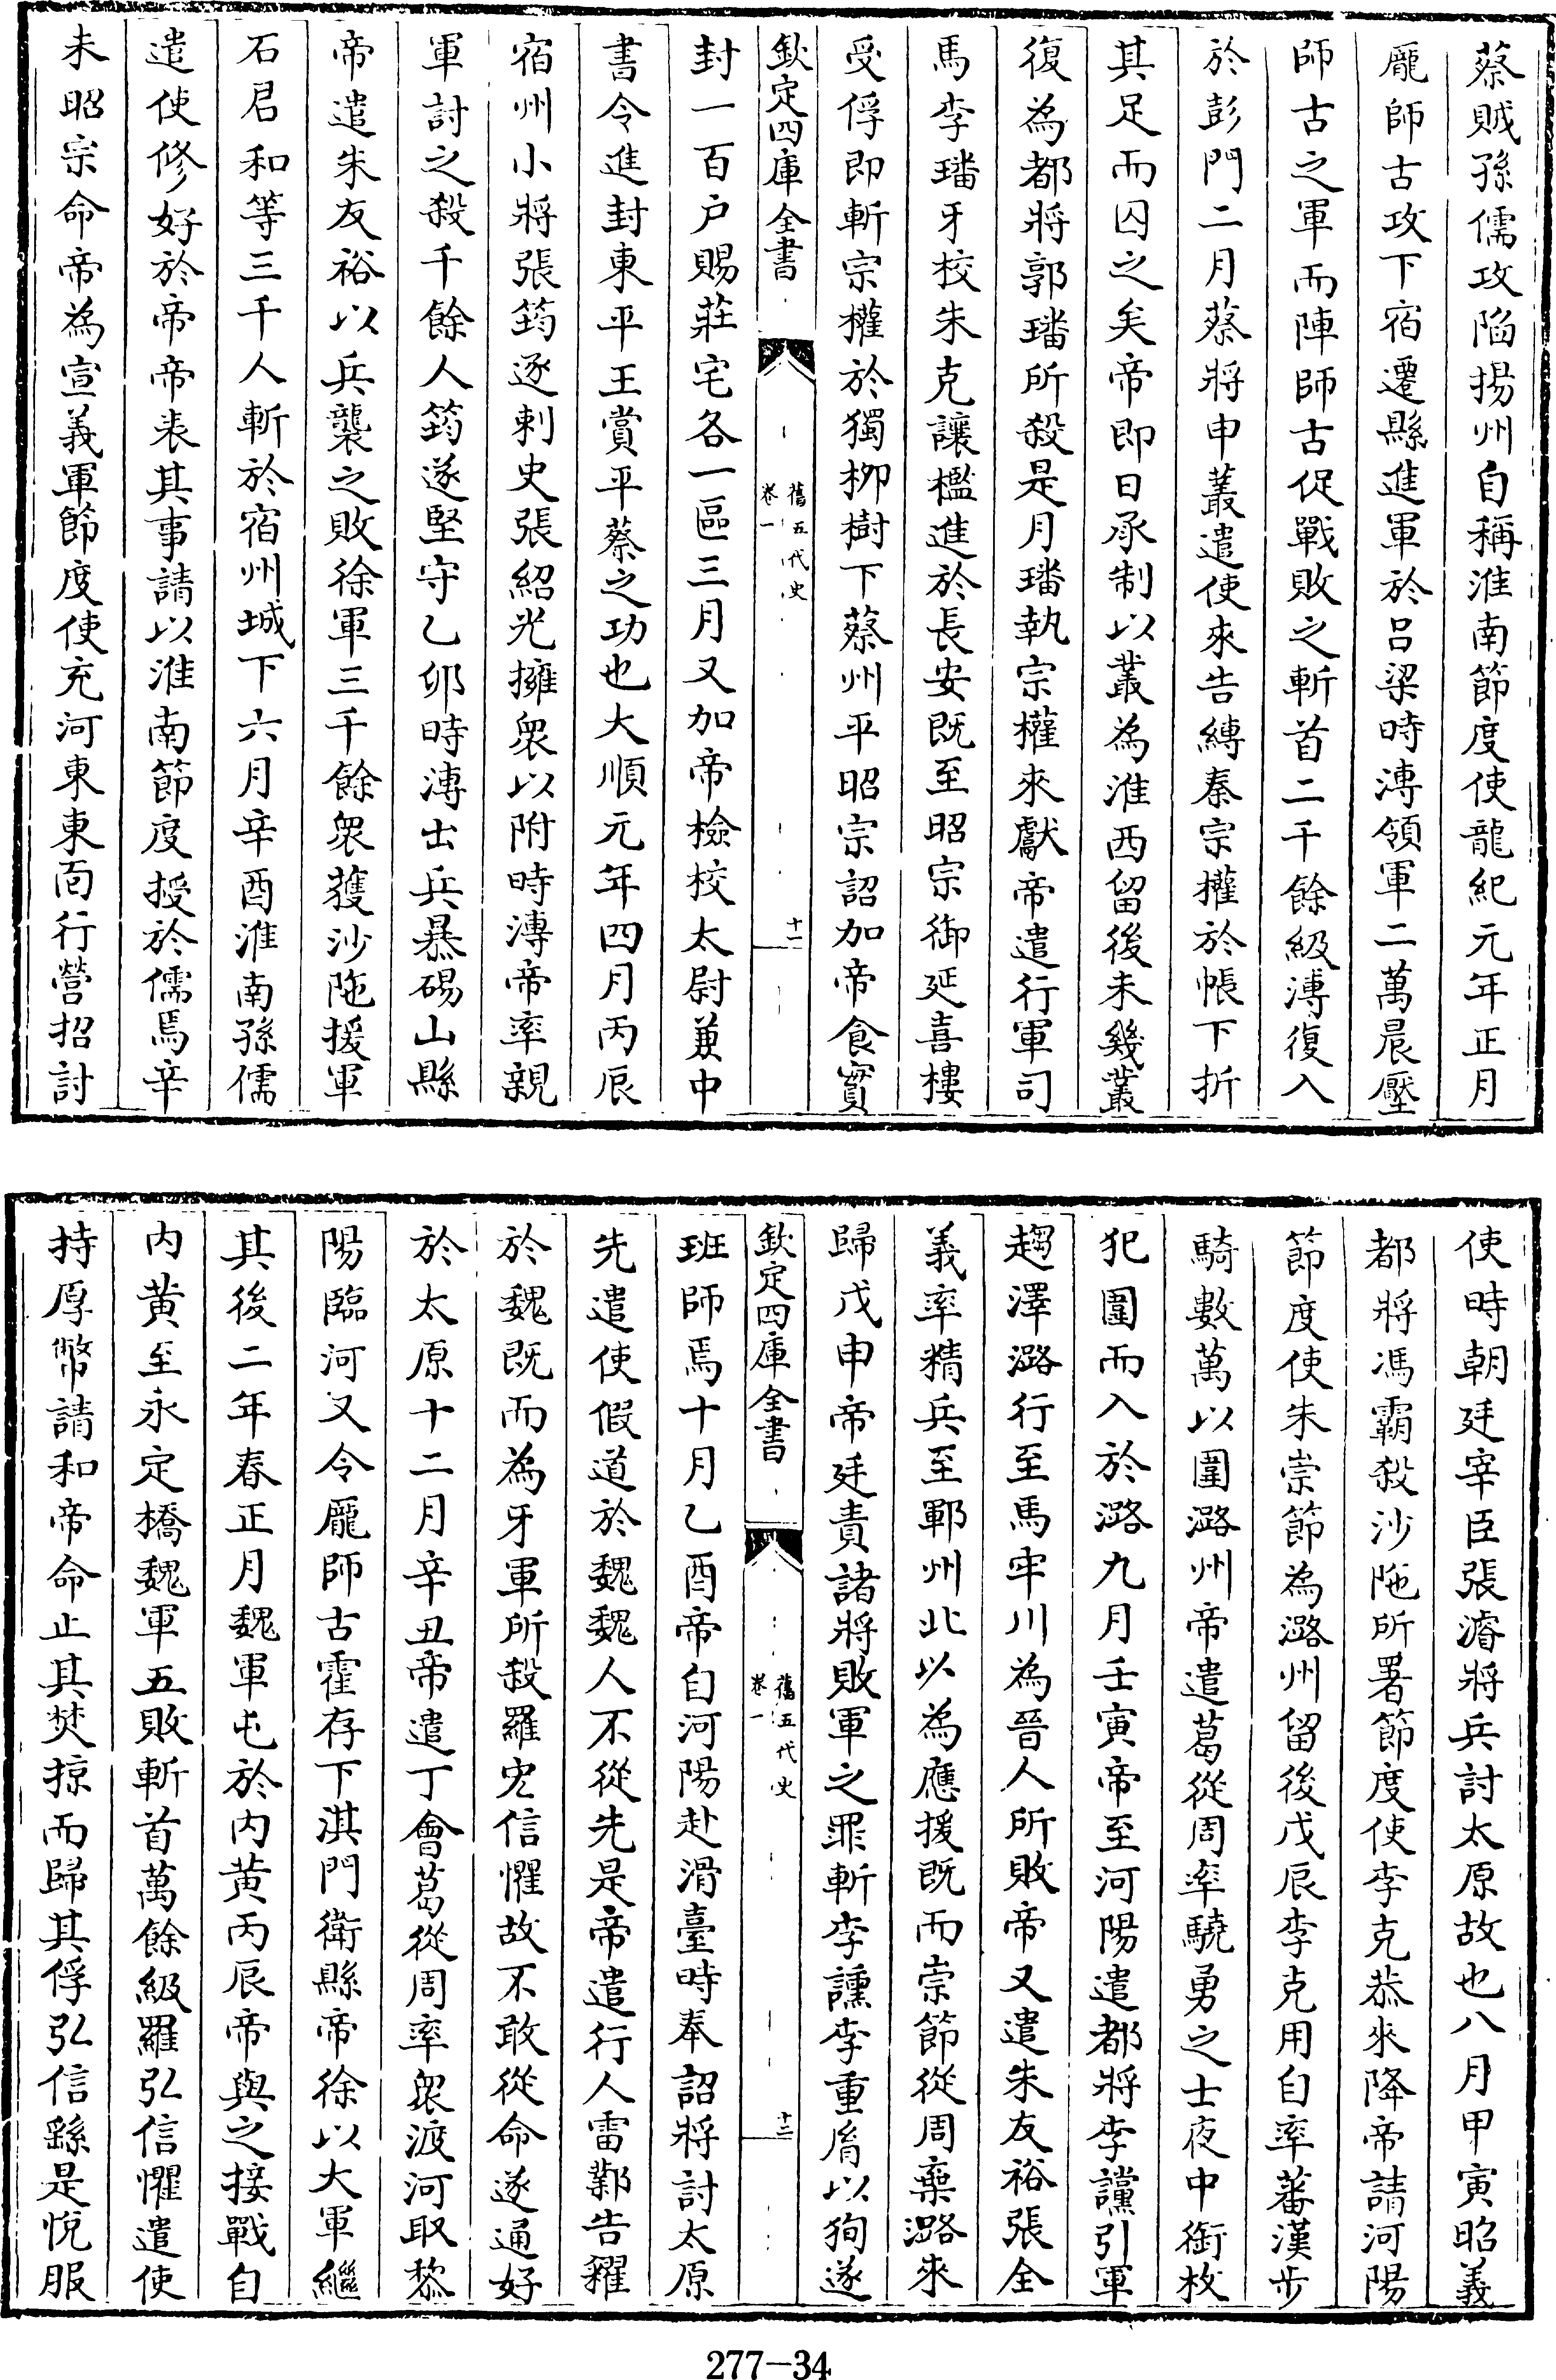 蔡賊孫儒攻陷揚州自稱淮南節度使龍紀元年正月
龐師古攻下宿遷縣進軍於呂梁時溥領軍二萬晨壓
師古之軍而陣師古促戰敗之斬首二千餘級溥復入
於彭門二月蔡將申叢遣使來告縛秦宗權於帳下折
其足而囚之矣帝即日承制以叢為淮西留後未幾叢
復為都將郭璠所殺是月璠執宗權來獻帝遣行軍司
馬李璠牙校朱克讓檻進於長安既至昭宗御延喜樓
受俘即斬宗權於獨栁樹下蔡州平昭宗詔加帝食實
欽定四庫全書
舊五代史
卷一
十一
封一百户賜莊宅各一區三月又加帝檢校太尉兼中
書令進封東平王賞平蔡之功也大順元年四月丙辰
宿州小將張筠逐刺史張紹光擁衆以附時溥帝率親
軍討之殺千餘人筠遂堅守乙卯時溥出兵暴碭山縣
帝遣朱友裕以兵襲之敗徐軍三千餘衆獲沙陁援軍
石君和等三千人斬於宿州城下六月辛酉淮南孫儒
遣使修好於帝帝表其事請以淮南節度授於儒焉辛
未昭宗命帝為宣義軍節度使充河東東面行營招討
使時朝廷宰臣張濬將兵討太原故也八月甲寅昭義
都將馮霸殺沙陁所署節度使李克恭來降帝請河陽
節度使朱崇節為潞州留後戊辰李克用自率蕃漢步
騎數萬以圍潞州帝遣葛從周率驍勇之士夜中銜枚
犯圍而入於潞九月壬寅帝至河陽遣都將李讜引軍
趨澤潞行至馬牢川為晉人所敗帝又遣朱友裕張全
義率精兵至鄆州北以為應援既而崇節從周棄潞來
歸戊申帝廷責諸將敗軍之罪斬李讜李重胤以狥遂
欽定四庫全書
舊五代史
卷一
十二
班師焉十月乙酉帝自河陽赴滑臺時奉詔將討太原
先遣使假道於魏魏人不從先是帝遣行人雷鄴告糴
於魏既而為牙軍所殺羅宏信懼故不敢從命遂通好
於太原十二月辛丑帝遣丁會葛從周率衆渡河取黎
陽臨河又令龐師古霍存下淇門衛縣帝徐以大軍繼
其後二年春正月魏軍屯於内黄丙辰帝與之接戰自
内黄至永定橋魏軍五敗斬首萬餘級羅弘信懼遣使
持厚幣請和帝命止其焚掠而歸其俘弘信繇是悅服
277-34